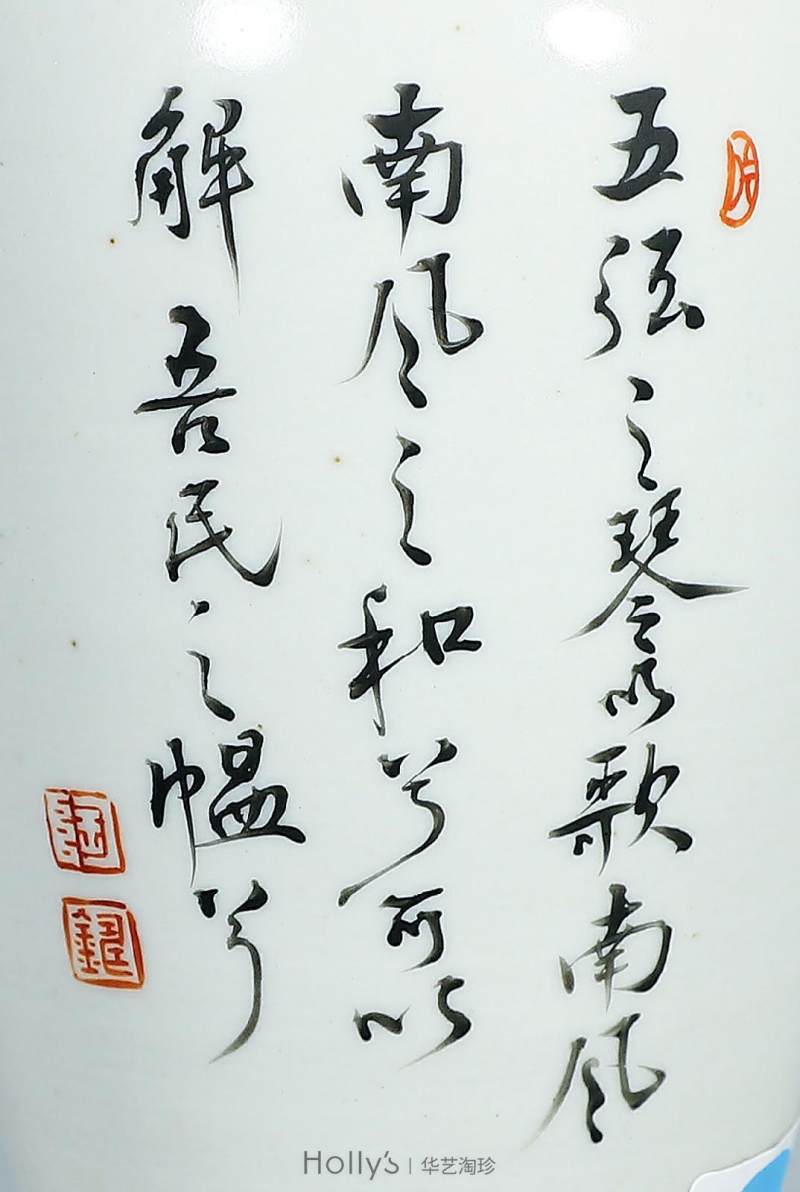 五弦之琴以歌南风
南风之和兮可以
解吾民之愠兮
Holly's | 华艺淘珍